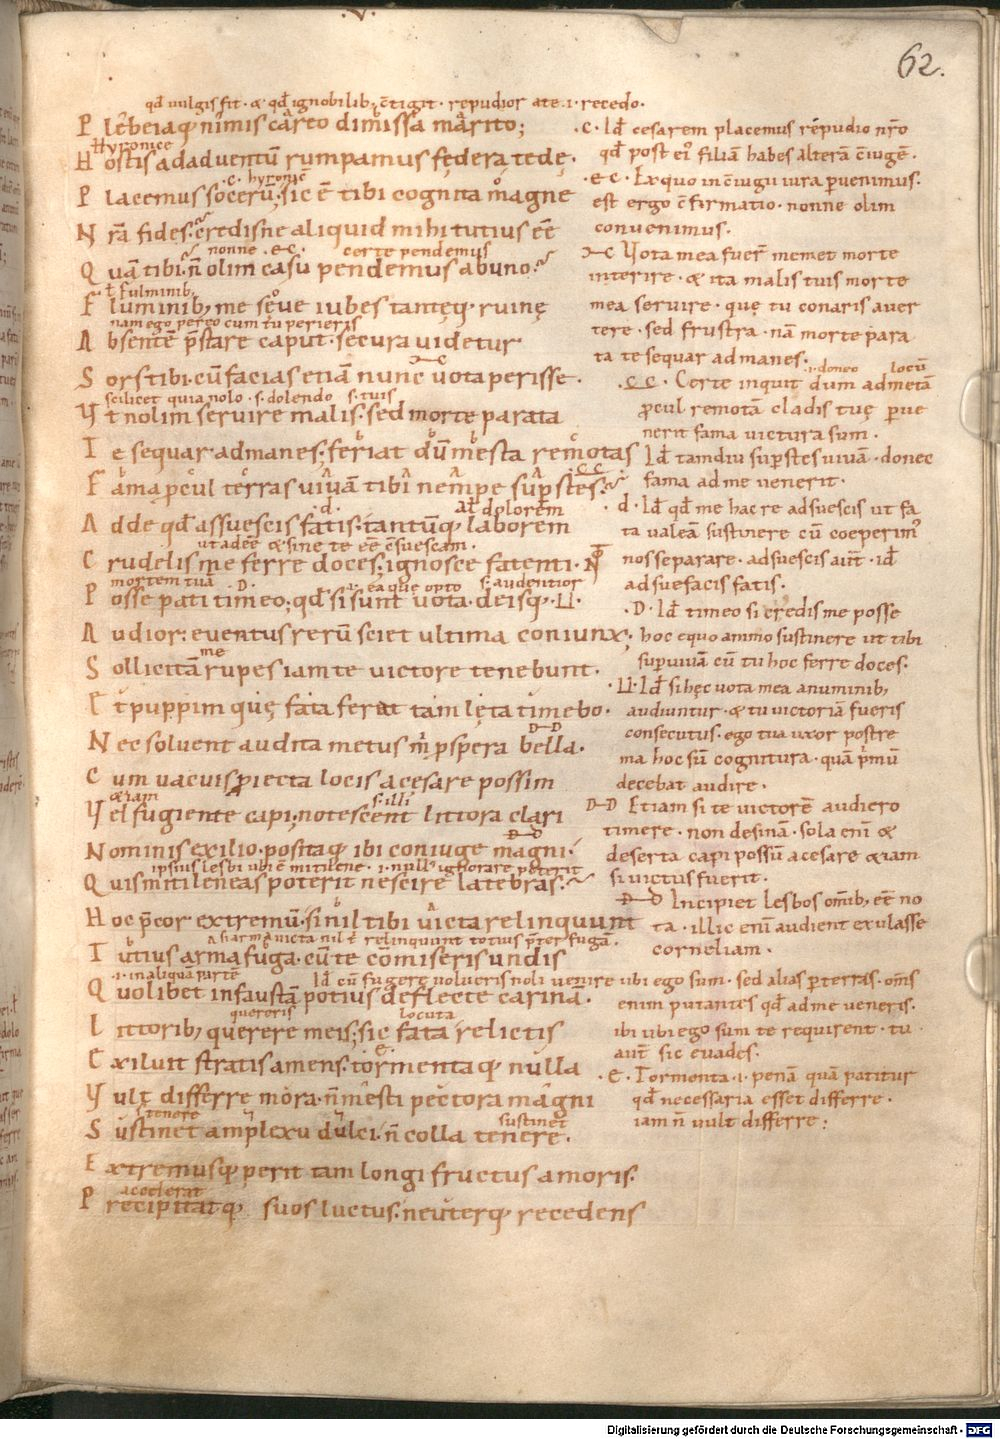 62.
qđ uulgis fit · & qđ ignobilib; ċtigit · repudior a te ·i· recedo.
P lebeiaq; nimis careo dimissa marito;
Hyronice
H ostis ad aduentū rumpamus fędera tedę.
·c· hyronicē
P lacemus socerū; sic ē tibi cognita magne
N rā fides; credisne aliquid mihi tutius eē
nonne ·&c· certe pendemus
Q uā tibi; n̄ olim casu pendemus ab uno;
ł fulminib;
F luminib; me sęue iubes tantęq; ruinę
nam ego pereo cum tu perieris
A bsentē p̄stare caput; secura uidetur
S ors tibi; cū facias etiā nunc uota perisse.
scilicet quia nolo · s· dolendo s· tuis
V t nolim seruire malis; sed morte parata
T e sequar ad manes; feriat dū męsta remotas
F ama ꝓcul terras uiuā tibi nempe suꝑstes;
·d· at dolorem
A dde qđ assuescis fatis; tantūq; laborem
ut adeē & sine te eē c̄suescam.
C rudelis me ferre doces; ignosce fatenti·
mortem tuā ·D· ·i· ea que opto s· audentior
P osse pati timeo; qđ si sunt uota· deisq;
A udior: euentus rerū sciet ultima coniunx;
me
S ollicitā rupes iam te uictore tenebunt.
E t puppim quę fata ferat tam lęta timebo.
N ec soluent audita metus m̄ ꝓspera bella.
C um uacuis ꝓiecta locis a cesare possim
&iam s· illi
V el fugiente capi; notescent littora clari
N ominis exilio· positaq; ibi coniuge magni·
ipsius lesbi ubi ē mitilene ·i· null' ignorare poterit
Q uis mitileneas poterit nescire latebras;
H oc p̄cor extremū; si nil tibi uicta relinquunt
si arma uicta nil t̄ relinquunt totius p̄ter fugā.
T utius arma fuga; cū te cōmiseris undis
·i· in aliquā partē Iđ cū fugere uolueris noli uenire
Q uolibet infaustā potius deflecte carinā.
quereris locuta
L ittorib; querere meis; sic fata relictis
E xiluit stratis amens; tormentaq; nulla
V ult differre mora· n̄ męsti pectora magni
s· tenere sustinet
S ustinet amplexu dulci; n̄ colla tenere.
E xtremusq; perit tam longi fructus amoris.
accelerat
P recipitatq; suos luctus; neuterq; recedens
·C· Iđ cesarem placemus repudio nr̄o
qđ post ei' filiā habes alterā c̄iugē.
·&c· Ex quo in c̄iugii iura ꝑuenimus.
est ergo c̄firmatio· nonne olim
conuenimus.
Vota mea fuer̄ memet morte
interire· & ita malis tuis morte
mea seruire· que tu conaris auer
tere· sed frustra· nā morte para
ta te sequar ad manes.
·i· doneo locū
·cc· Certe inquit dum ad metā
ꝓcul remotā cladis tuę ꝑue
nerit fama uictura sum.
Iđ tamdiu suꝑstes uiuā· donec
fama ad me uenerit.
·d· Iđ qđ me hac re adsuescis ut fa
ta ualeā sustinere cū coeperim'
nos separare· adsuescis aut̄· iđ
adsuefacis fatis.
·D· Iđ timeo si credis me posse
hoc equo animo sustinere ut tibi
suꝑuiuā cū tu hoc ferre doces.
Iđ si hęc uota mea a numinib;
audiuntur· & tu uictoriā fueris
consecutus· ego tua uxor postre
ma hoc sū cognitura· quā p̄mū
decebat audire.
D-D Etiam si te uictorē audiero
timere· non desinā· sola eni &
deserta capi possū a cesare &iam
si uictus fuerit.
D-D Incipiet lesbos om̄ib; eē no
ta· illic eni audient exulasse
corneliam.
ubi ego sum· sed alias ꝑ terras· om̄s
enim putantes qđ ad me ueneris·
ibi ubi ego sum te requirent· tu
aut̄ sic euades.
·E· Tormenta ·i· penā quā patitur
qđ necessaria esset differre·
iam n̄ uult differre:
Digitalisierung gefördert durch die Deutsche Forschungsgemeinschaft - DFG